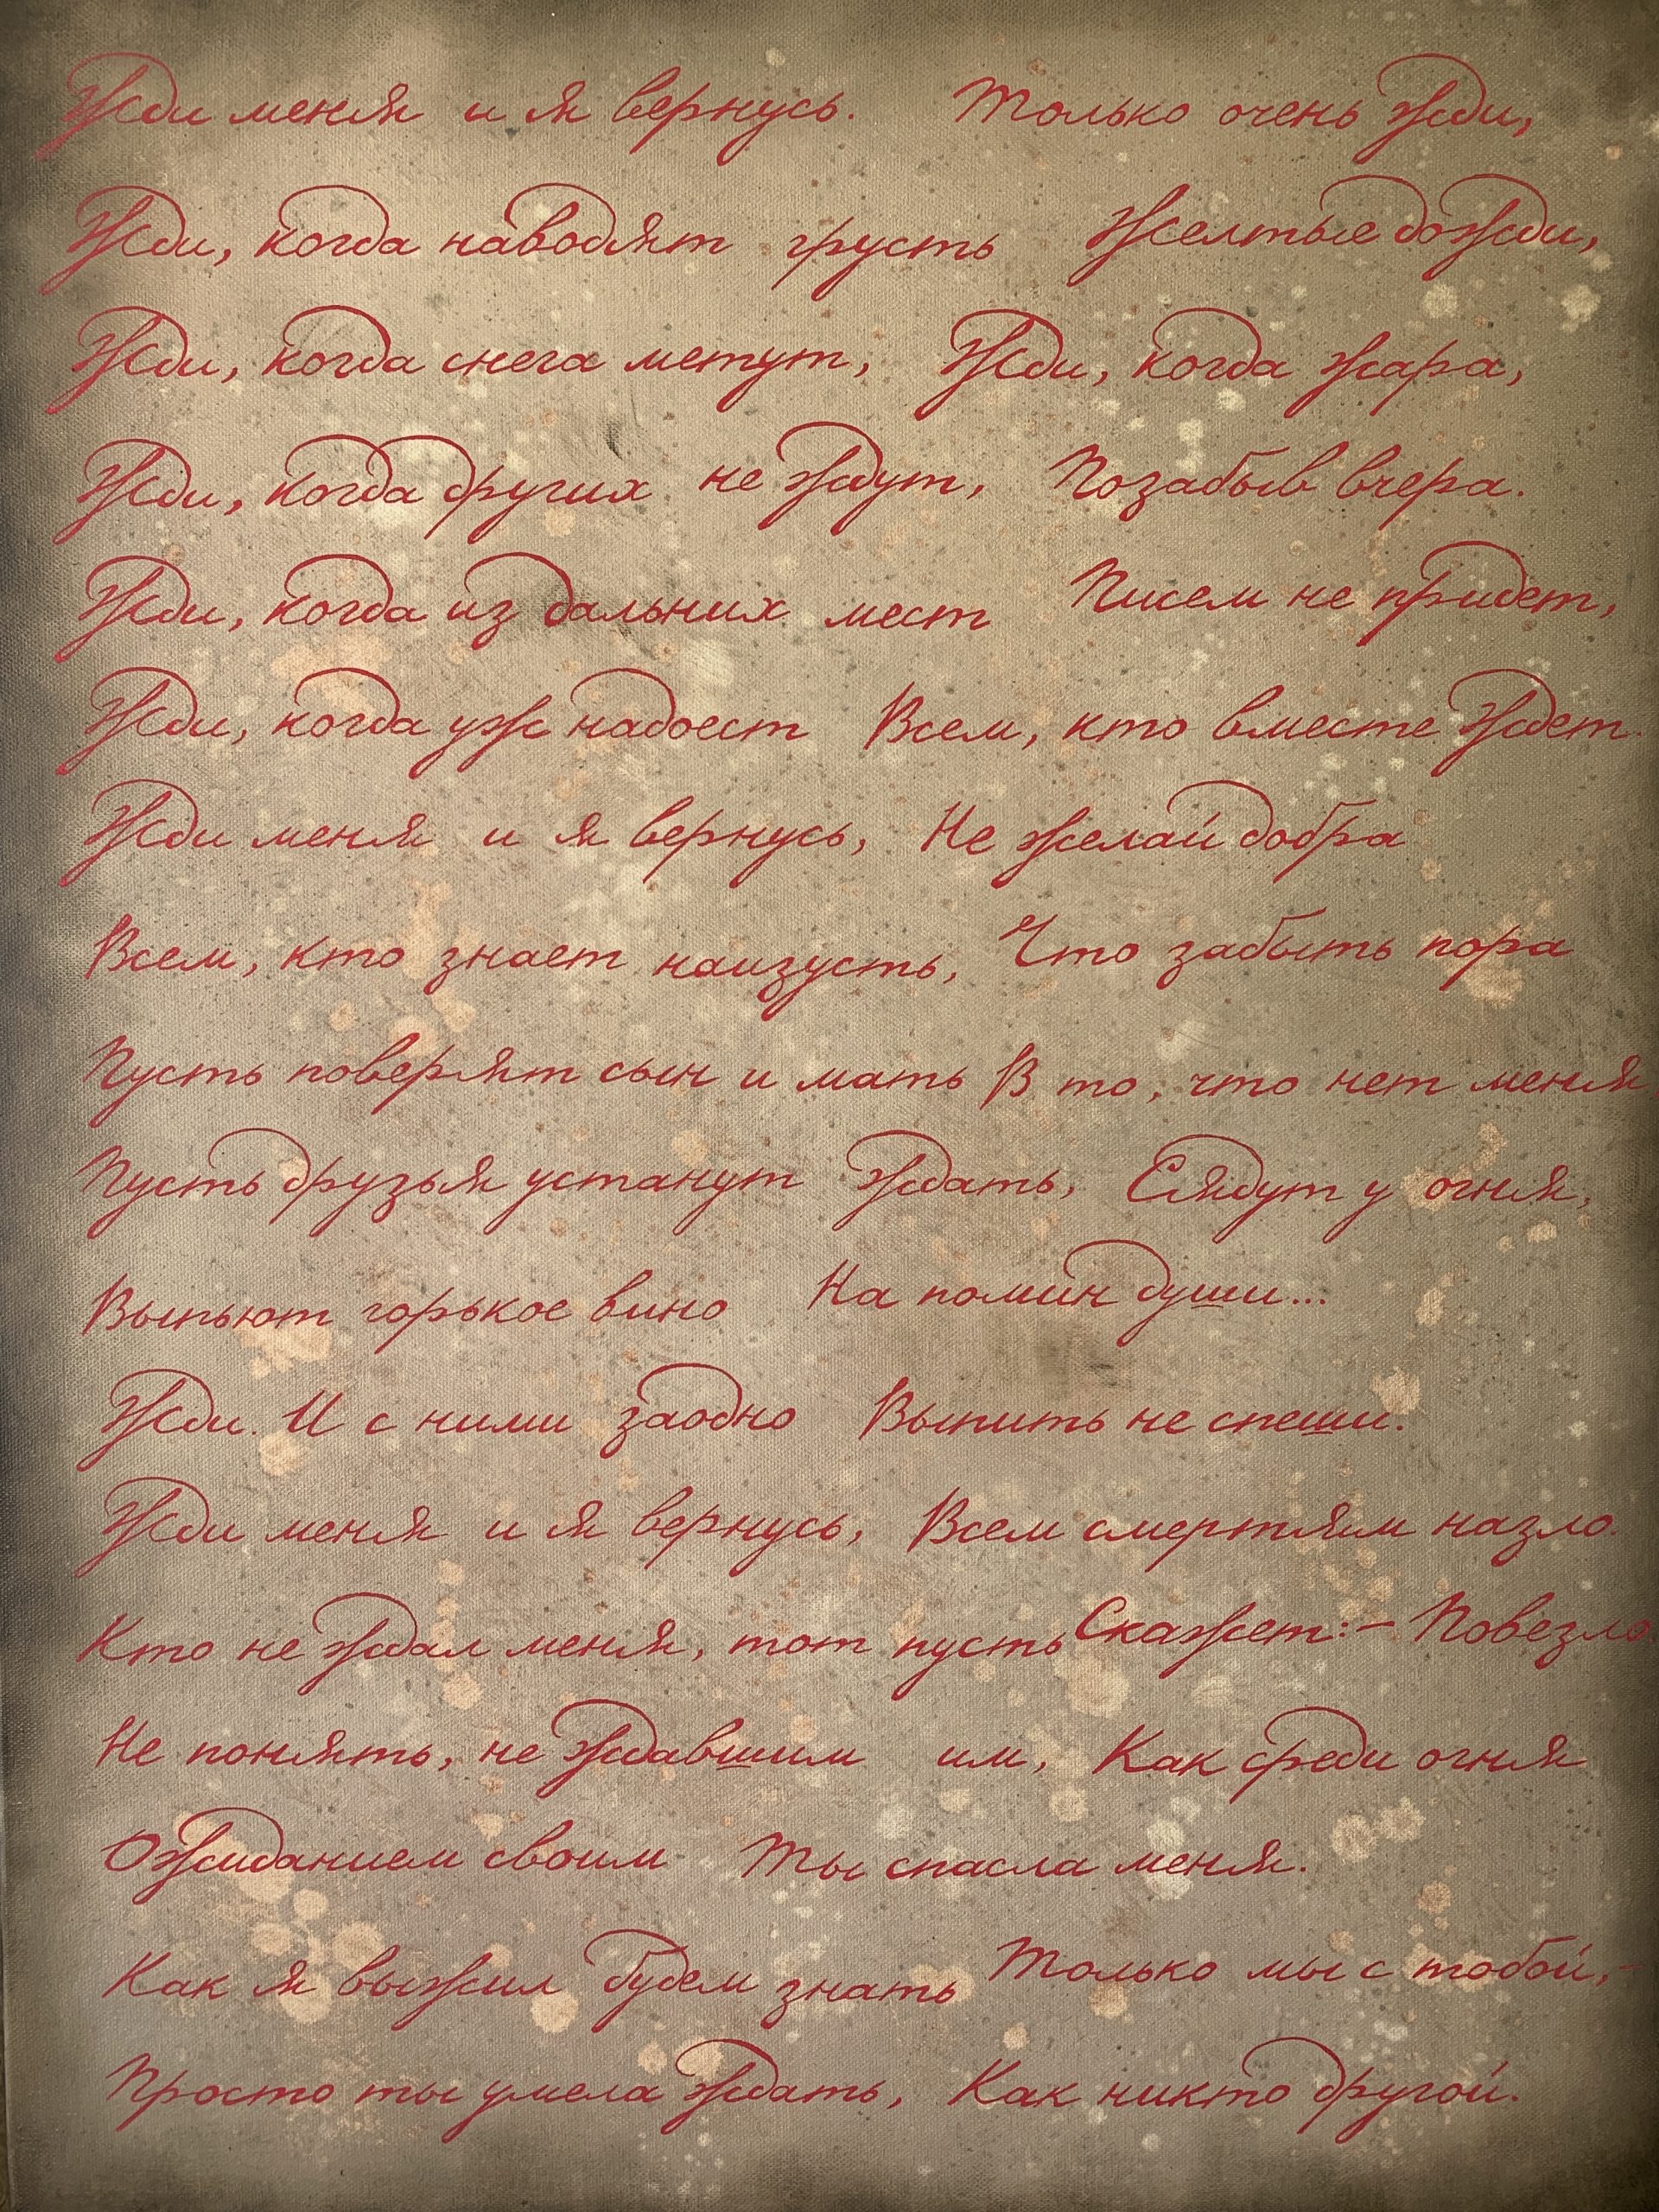 Жди меня и я вернусь. Только очень жди,
Жди, когда наводят грусть Желтые дожди,
Жди, когда снега метут, Жди, когда жара,
Жди, когда других не ждут, Позабыв вчера.
Жди, когда из дальних мест Писем не придет,
Жди, когда уж надоест Всем, кто вместе ждет.
Жди меня и я вернусь, Не желай добра
Всем, кто знает наизусть, Что забыть пора
Пусть поверят сын и мать В то, что нет меня,
Пусть друзья устанут ждать, Сядут у огня,
Выпьют горькое вино На помин души...
Жди. И с ними заодно Выпить не спеши.
Жди меня и я вернусь, Всем смертям назло.
Кто не ждал меня, тот пусть Скажет: - Повезло.
Не понять, не ждавшим им, Как среди огня
Ожиданием своим Ты спасла меня.
Как я выжил будем знать Только мы с тобой, -
Просто ты умела ждать, Как никто другой.